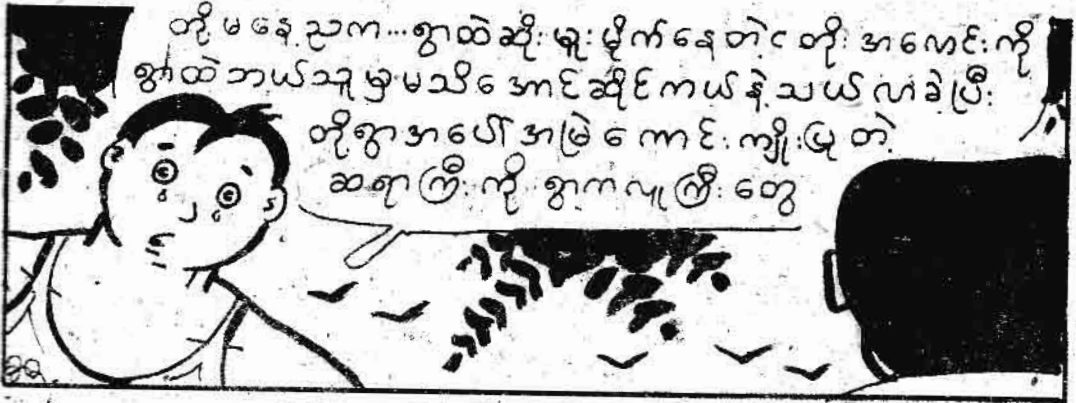 တို့မနေ့ညက...ရွာထဲဆိုးမူးမိုက်နေတဲ့ငတိုးအလောင်းကို
ရွာထဲဘယ်သူမှမသိအောင်ဆိုင်ကယ်နဲ့သယ်လာခဲ့ပြီး
တို့ရွာအပေါ်အမြဲကောင်းကျိုးပြုတဲ့
ဆရာကြီးကို ရွာကလူကြီးတွေ